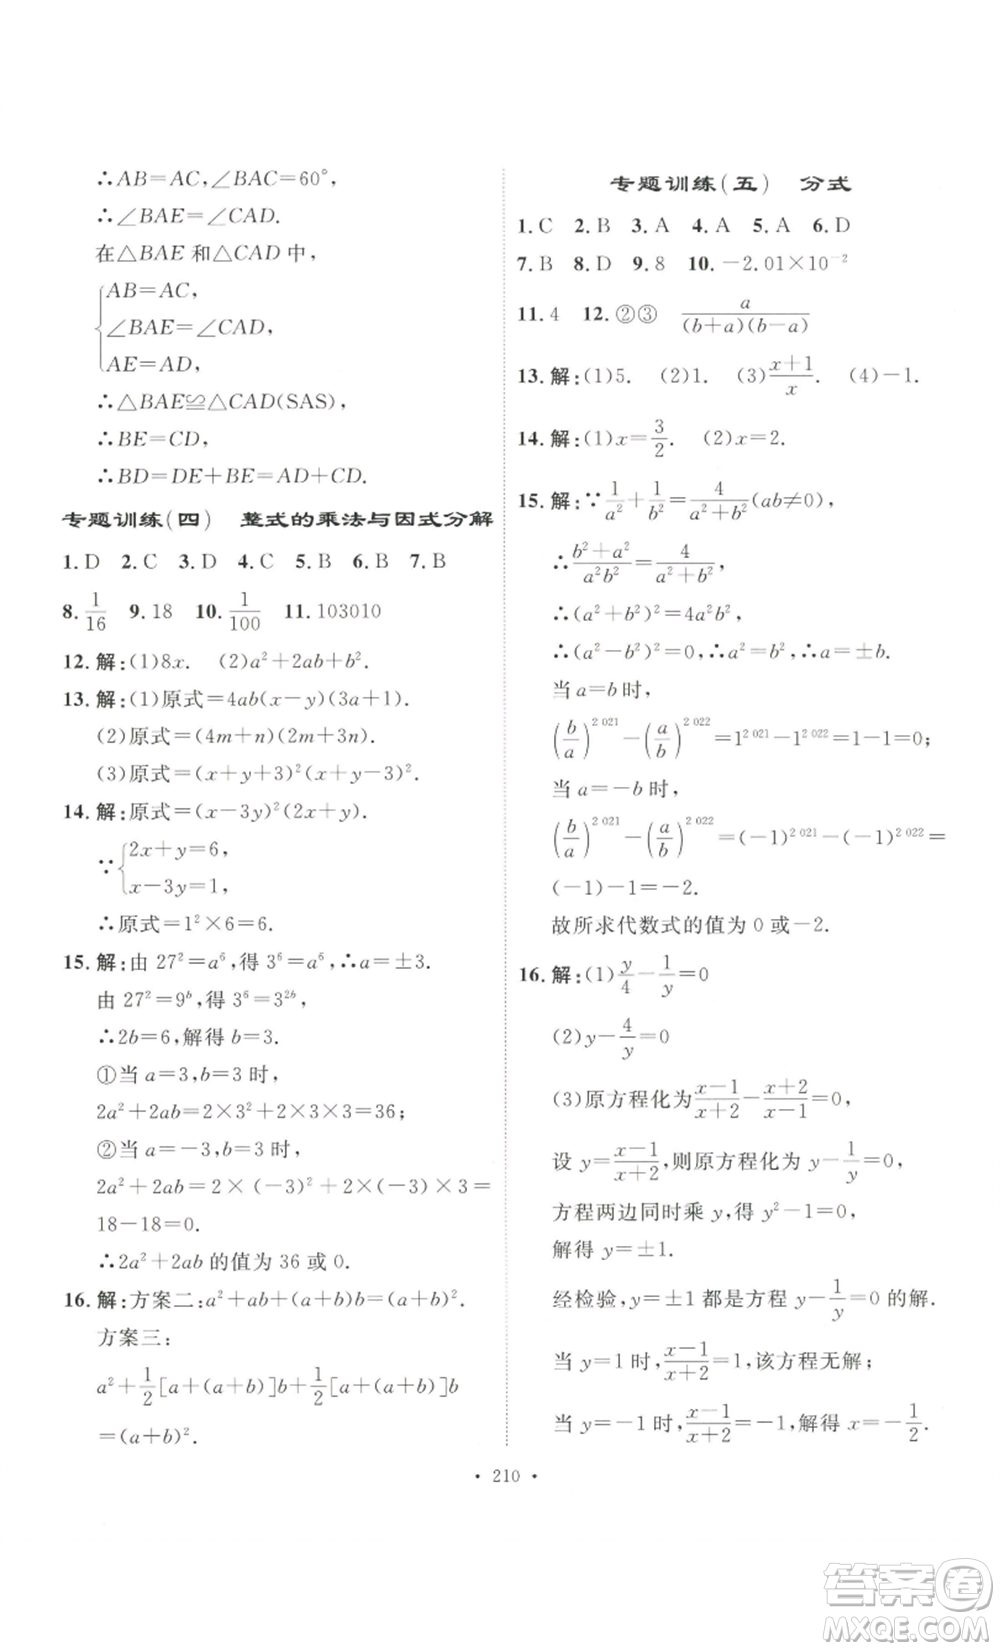 ∴AB=AC,∠BAC=60°,
∴∠BAE=∠CAD.
在△BAE 和△CAD 中,
AB=AC,
∠BAE=∠CAD,
AE=AD,
∴△BAE≌△CAD(SAS),
∴BE=CD,
∴BD=DE+BE=AD+CD.
专题训练(四) 整式的乘法与因式分解
1.D 2.C 3.D 4.C 5.B 6.B 7.B
8. 1/16 9.18 10. 1/100 11.103010
12.解:(1)8x. (2)a²+2ab+b².
13.解:(1)原式=4ab(x-y)(3a+1).
(2)原式=(4m+n)(2m+3n).
(3)原式=(x+y+3)²(x+y-3)².
14.解:原式=(x-3y)²(2x+y).
∵ 2x+y=6,
x-3y=1,
∴原式=1²×6=6.
15.解:由 27²=a⁶,得 3⁶=a⁶,∴a=±3.
由 27²=9ᵇ,得 3⁶=3²ᵇ,
∴2b=6,解得 b=3.
①当 a=3,b=3 时,
2a²+2ab=2×3²+2×3×3=36;
②当 a=-3,b=3 时,
2a²+2ab=2×(-3)²+2×(-3)×3=
18-18=0.
∴2a²+2ab 的值为 36 或 0.
16.解:方案二:a²+ab+(a+b)b=(a+b)².
方案三:
a²+1/2[a+(a+b)]b+1/2[a+(a+b)]b
=(a+b)².
专题训练(五) 分式
1.C 2.B 3.A 4.A 5.A 6.D
7.B 8.D 9.8 10.-2.01×10⁻²
11.4 12.②③ a/((b+a)(b-a))
13.解:(1)5. (2)1. (3)(x+1)/x. (4)-1.
14.解:(1)x=3/2. (2)x=2.
15.解:∵1/a²+1/b²=4/(a²+b²)(ab≠0),
∴(b²+a²)/(a²b²)=4/(a²+b²),
∴(a²+b²)²=4a²b²,
∴(a²-b²)²=0,∴a²=b²,∴a=±b.
当 a=b 时,
(b/a)²⁰²¹-(a/b)²⁰²²=1²⁰²¹-1²⁰²²=1-1=0;
当 a=-b 时,
(b/a)²⁰²¹-(a/b)²⁰²²=(-1)²⁰²¹-(-1)²⁰²²=
(-1)-1=-2.
故所求代数式的值为 0 或-2.
16.解:(1)y/4-1/y=0
(2)y-4/y=0
(3)原方程化为(x-1)/(x+2)-(x+2)/(x-1)=0,
设 y=(x-1)/(x+2),则原方程化为 y-1/y=0,
方程两边同时乘 y,得 y²-1=0,
解得 y=±1.
经检验,y=±1 都是方程 y-1/y=0 的解.
当 y=1 时,(x-1)/(x+2)=1,该方程无解;
当 y=-1 时,(x-1)/(x+2)=-1,解得 x=-1/2.
• 210 •
答案卷
MXQE.COM